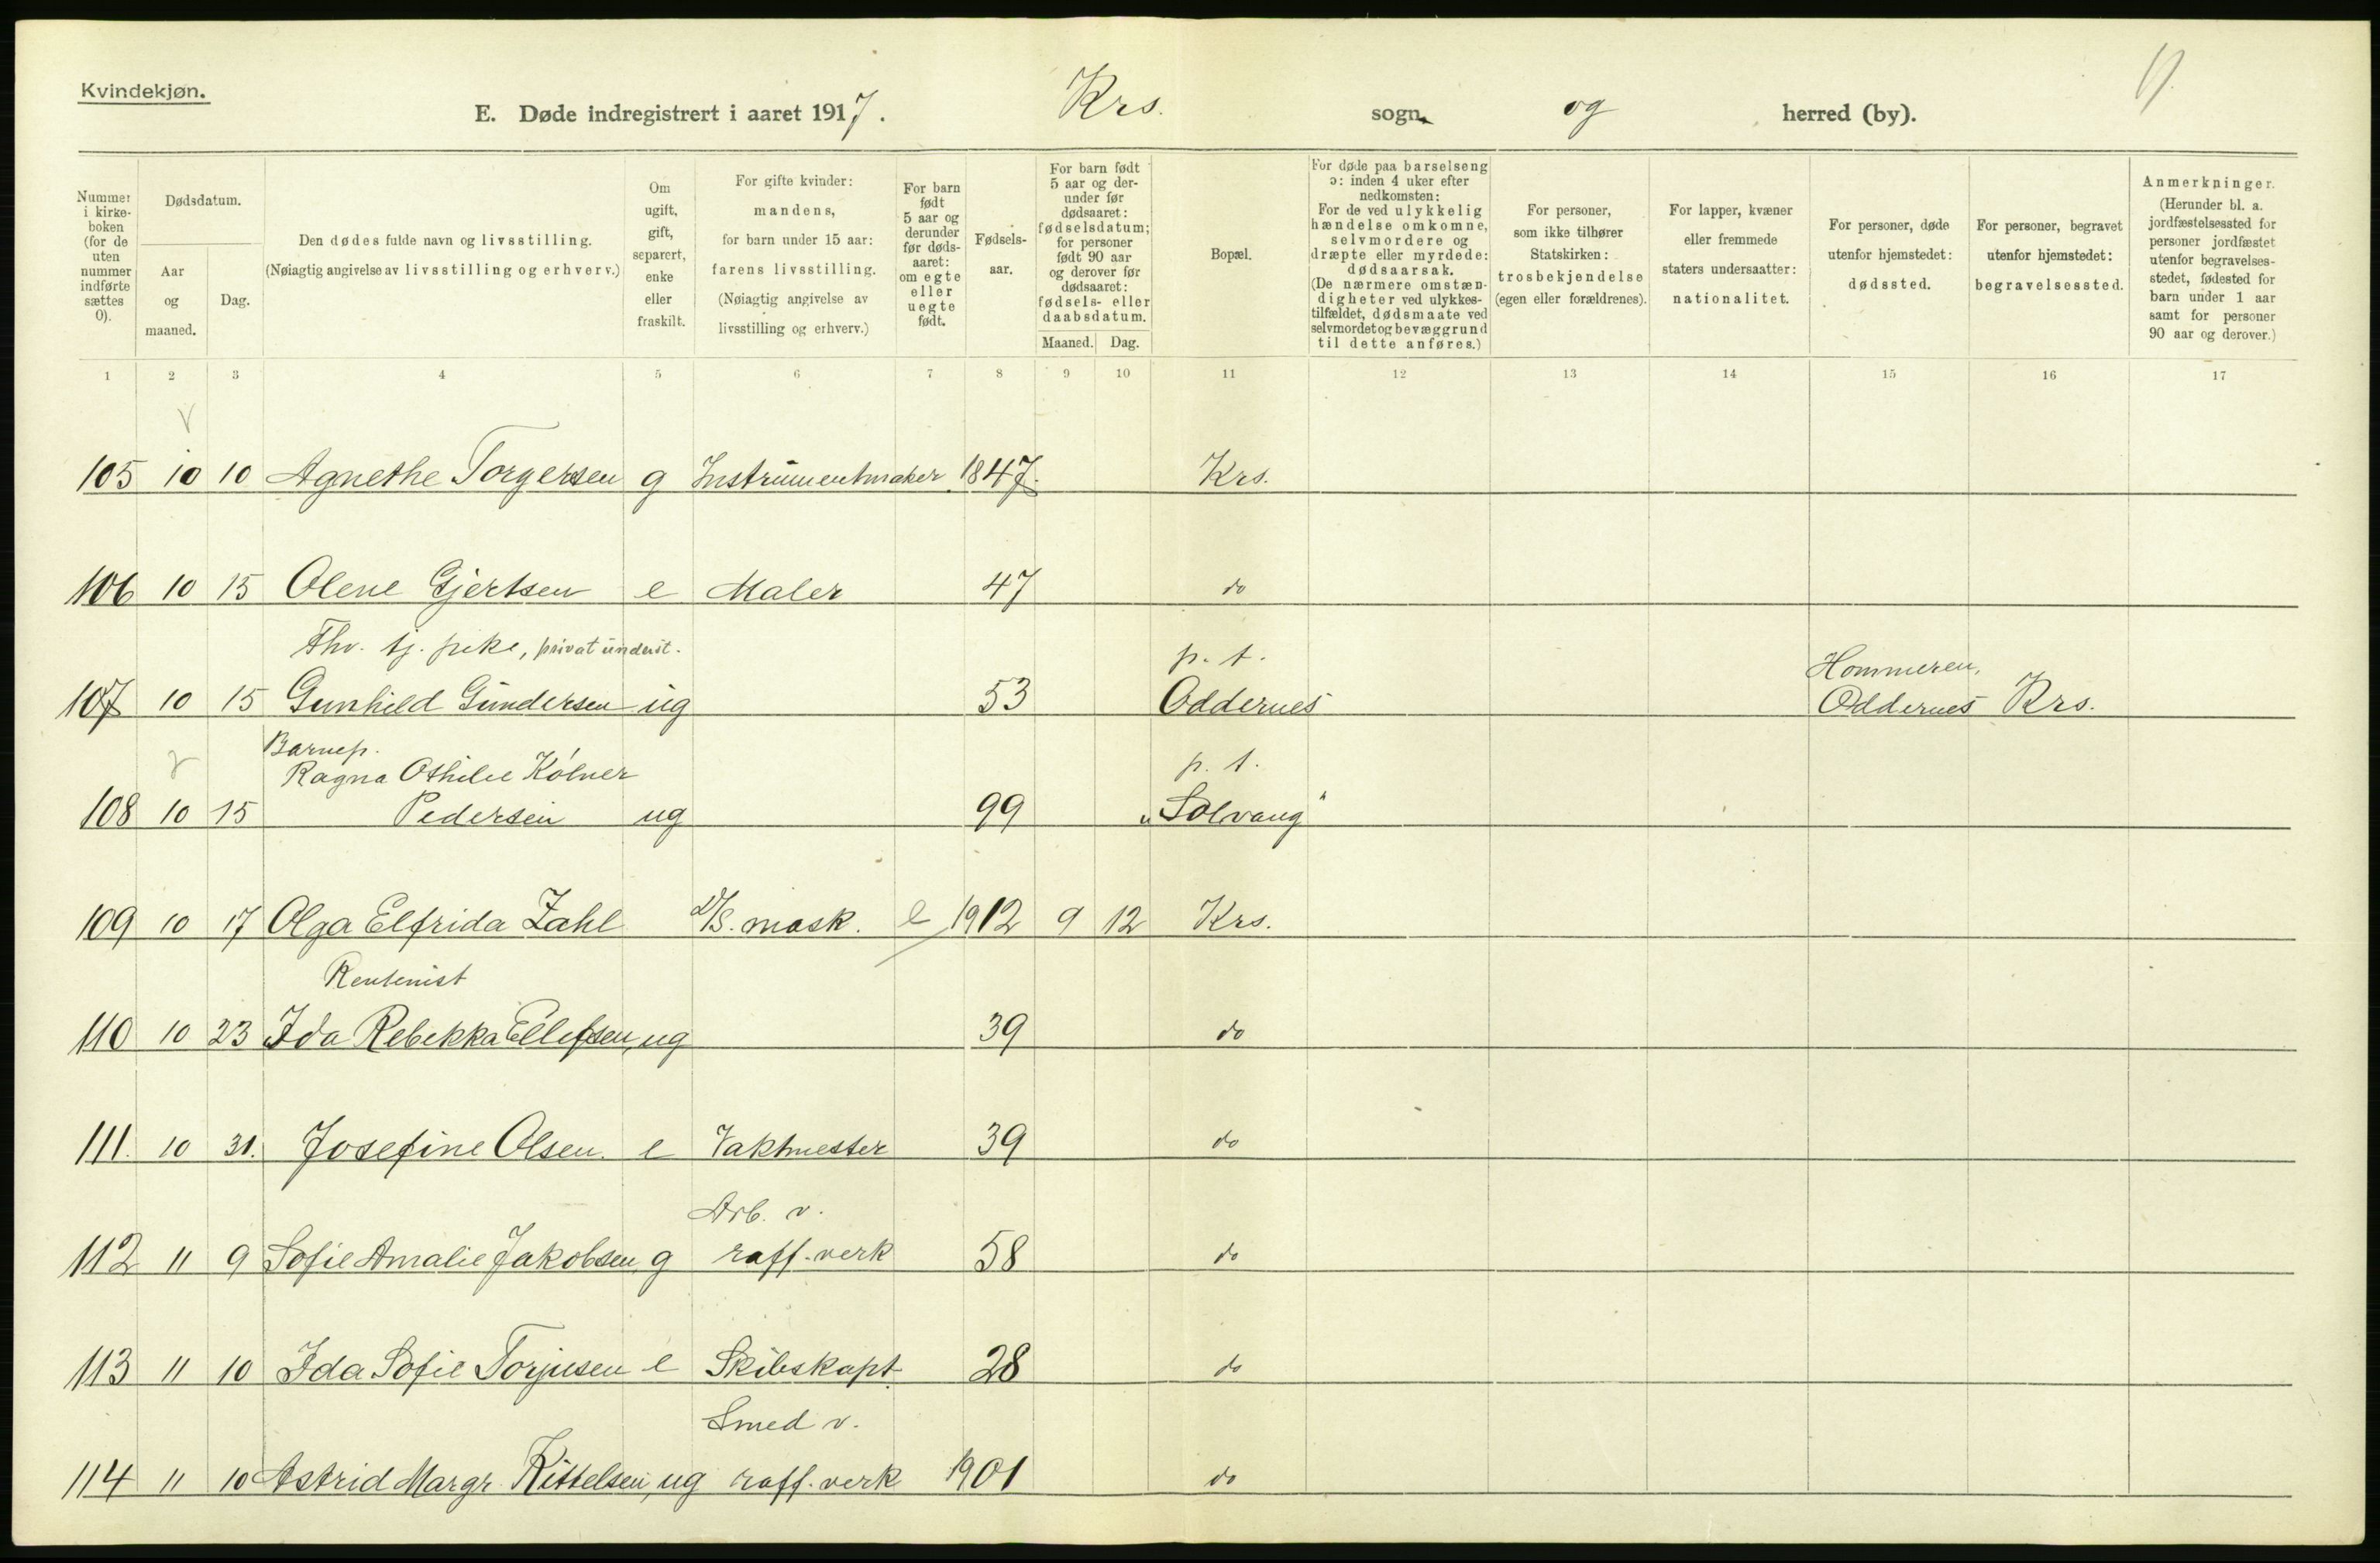 Kvindekjøn.
E. Døde indregistrert i aaret 1917. Krs. sogn og herred (by).
Nummer i kirkeboken (for de uten nummer indførte sættes 0).
Dødsdatum.
Aar og maaned.
Dag.
Den dødes fulde navn og livsstilling.
(Nøiagtig angivelse av livsstilling og erhverv.)
Om ugift, gift, separert, enke eller fraskilt.
For gifte kvinder: mandens, for barn under 15 aar: farens livsstilling. (Nøiagtig angivelse av livsstilling og erhverv.)
For barn født 5 aar og derunder før dødsaaret: om egte eller uegte født.
Fødselsaar.
For barn født 5 aar og derunder før dødsaaret: fødselsdatum; for personer født 90 aar og derover før dødsaaret: fødsels- eller daabsdatum.
Maaned. Dag.
Bopæl.
For døde paa barselseng ɔ: inden 4 uker efter nedkomsten: For de ved ulykkelig hændelse omkomne, selvmordere og dræpte eller myrdede: dødsaarsak. (De nærmere omstændigheter ved ulykkestilfældet, dødsmaate ved selvmordet og bevæggrund til dette anføres.)
For personer, som ikke tilhører Statskirken: trosbekjendelse (egen eller forældrenes).
For lapper, kvæner eller fremmede staters undersaatter: nationalitet.
For personer, døde utenfor hjemstedet: dødssted.
For personer, begravet utenfor hjemstedet: begravelsessted.
Anmerkninger. (Herunder bl. a. jordfæstelsessted for personer jordfæstet utenfor begravelsesstedet, fødested for barn under 1 aar samt for personer 90 aar og derover.)
1 2 3 4 5 6 7 8 9 10 11 12 13 14 15 16 17
105 10 10 Agnethe Torgersen g Instrumentmaker 1847. Krs.
106 10 15 Olene Gjertsen e Maler 47 do
Fhv. tj. pike, privat underst. p. t. Hommeren,
107 10 15 Gunhild Gundersen ug 53 Oddernes Oddernes Krs.
Barnep.
Ragna Othilie Kölner p. t.
108 10 15 Pedersen ug 99 „Solvang"
109 10 17 Olga Elfrida Zahl D/S. mask. e 1912 9 12 Krs.
Rentenist
110 10 23 Ida Rebekka Ellefsen, ug 39 do
111. 10 31. Josefine Olsen. e Vaktmester 39 do
Arb. v.
112 11 9 Sofie Amalie Jakobsen, g raff. verk 58 do
113 11 10 Ida Sofie Torjusen e Skibskapt. 28 do
Smed v.
114 11 10 Astrid Margr. Kittelsen, ug raff. verk 1901 do